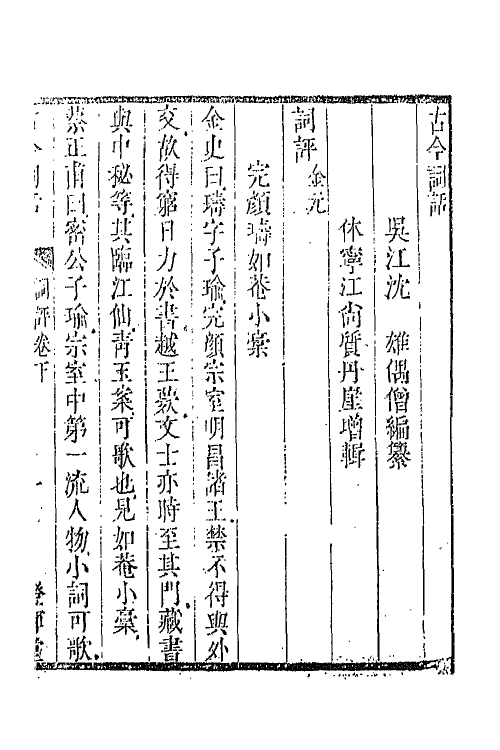 古今詞話
吳江沈　雄偶僧編纂
休寧江尙質丹崖增輯
詞評 金元
完顔璹如菴小稾
金史曰璹字子瑜完顔宗室明昌諸王禁不得與外
交故得窮日力於書越王歿文士亦時至其門藏書
與中秘等其臨江仙靑玉案可歌也見如菴小稾
蔡正甫曰密公子瑜宗室中第一流人物小詞可歌
古今詞話　詞評卷下